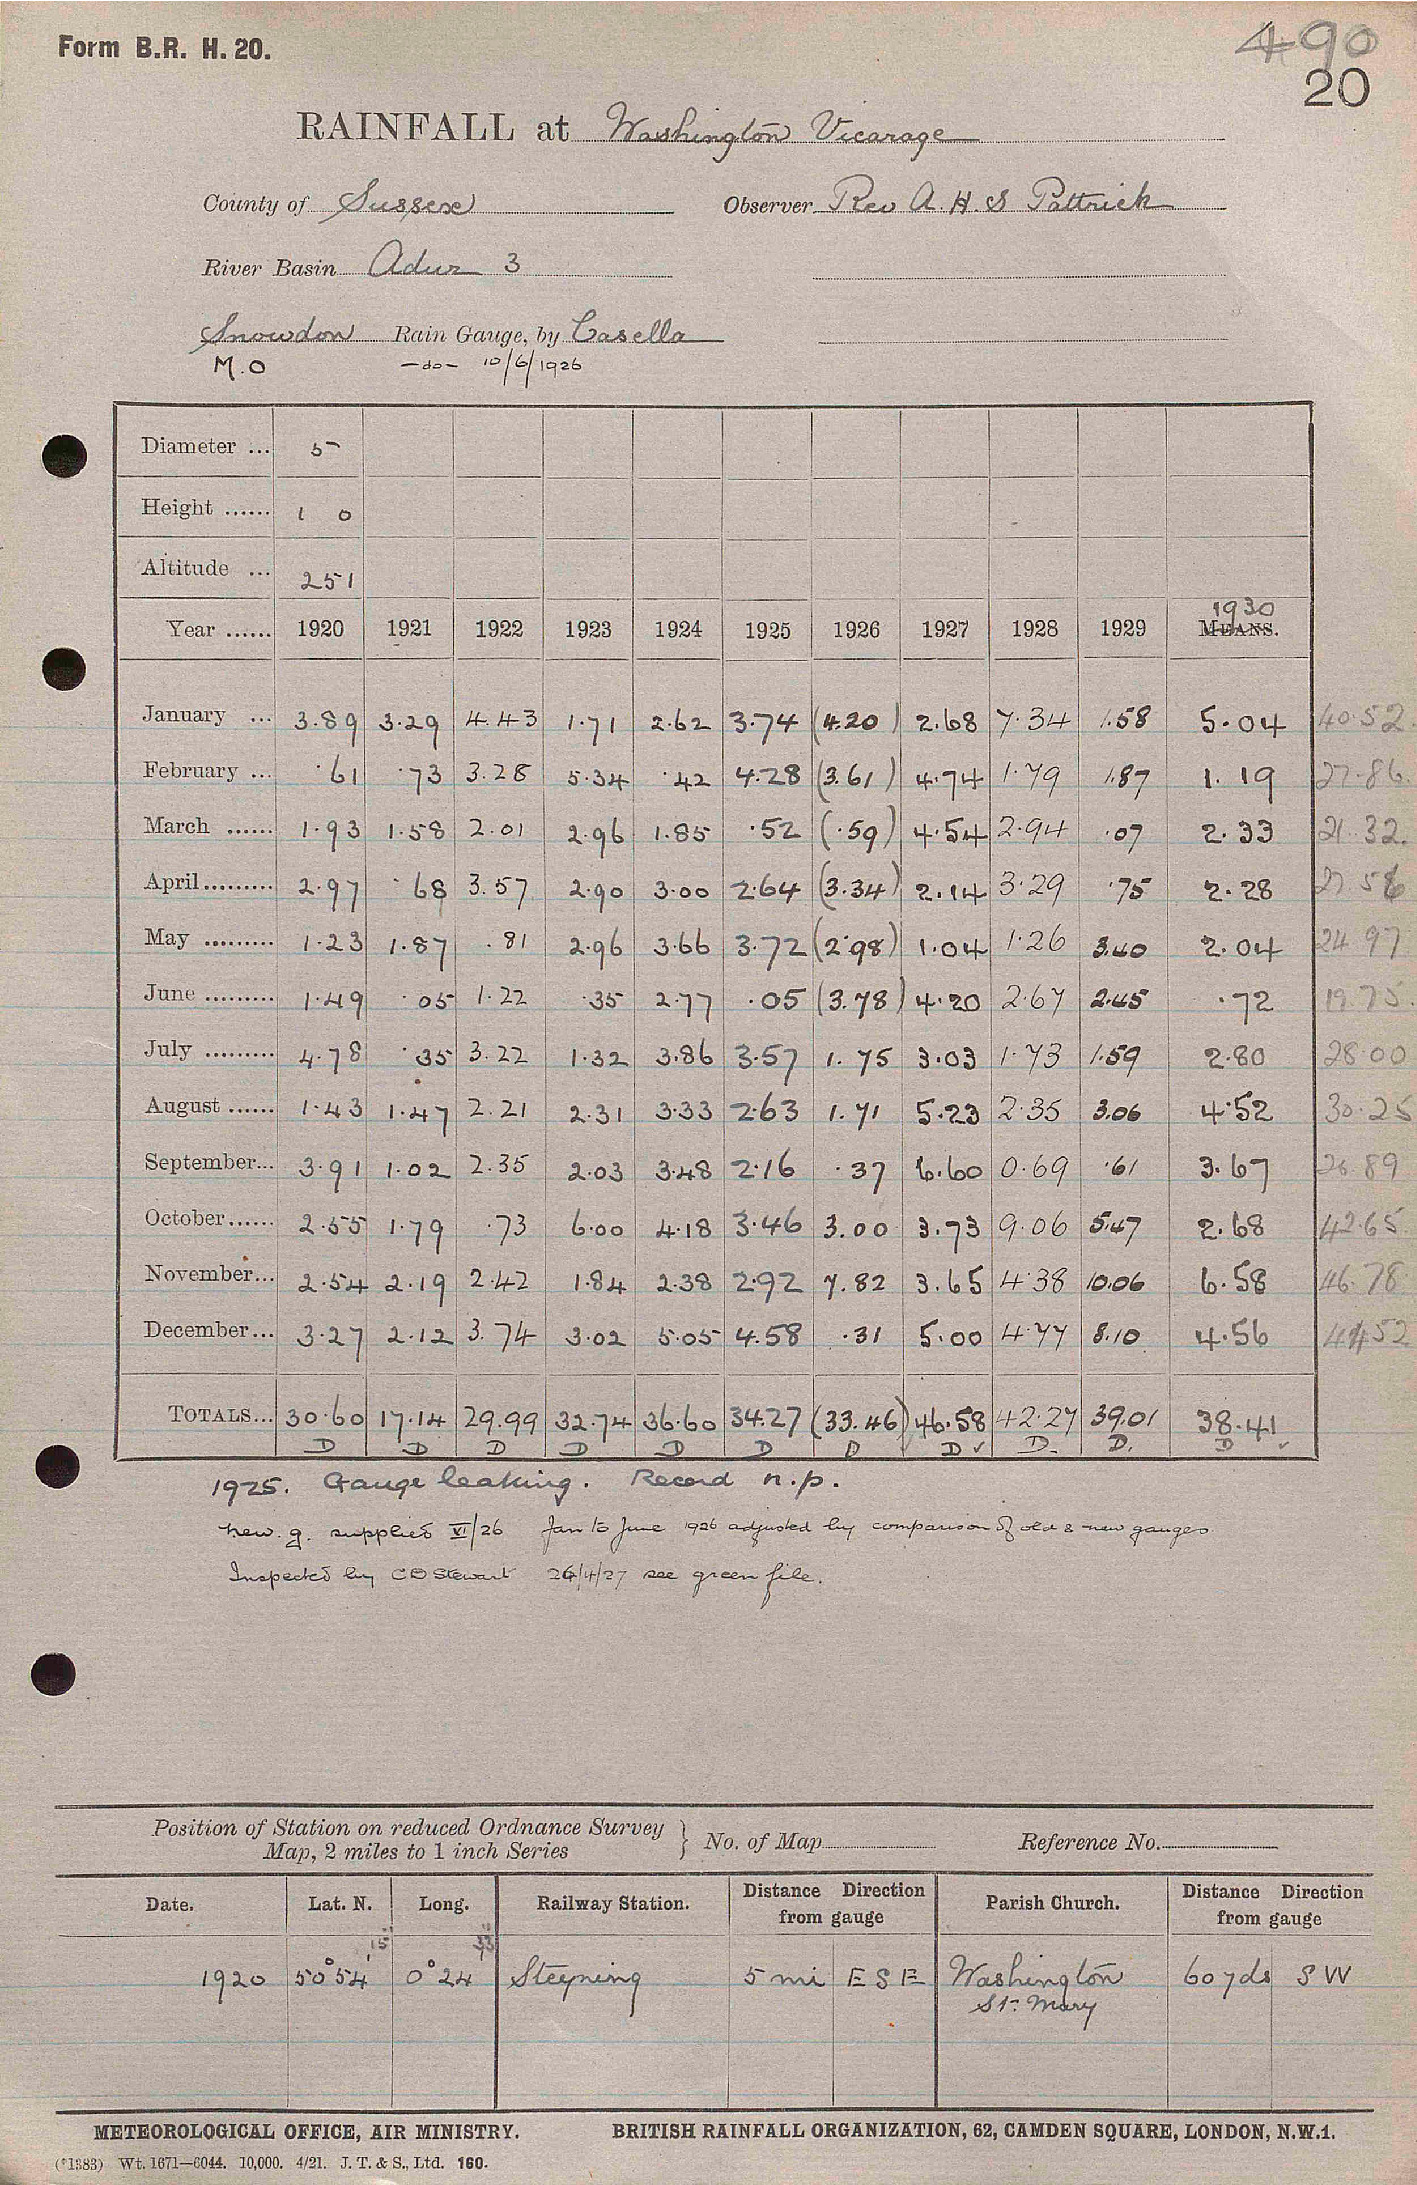 Form B.R. H. 20.
490
20
RAINFALL at Washington Vicarage
County of Sussex Observer Rev A. H. S Pattrick
River Basin Adur 3
Snowdon Rain Gauge, by Casella
M.O —do— 10/6/1926
Diameter ... 5
Height ...... 1 0
Altitude ... 251
1930
Year ...... 1920 1921 1922 1923 1924 1925 1926 1927 1928 1929 MEANS.
January ... 3.89 3.29 4.43 1.71 2.62 3.74 (4.20) 2.68 7.34 1.58 5.04 40.52
February ... .61 .73 3.28 5.34 .42 4.28 (3.61) 4.74 1.79 1.87 1.19 27.86
March ...... 1.93 1.58 2.01 2.96 1.85 .52 (.59) 4.54 2.94 .07 2.33 21.32
April ......... 2.97 .68 3.57 2.90 3.00 2.64 (3.34) 2.14 3.29 .75 2.28 27.56
May ......... 1.23 1.87 .81 2.96 3.66 3.72 (2.98) 1.04 1.26 3.40 2.04 24.97
June ......... 1.49 .05 1.22 .35 2.77 .05 (3.78) 4.20 2.67 2.45 .72 19.75
July ......... 4.78 .35 3.22 1.32 3.86 3.57 1.75 3.03 1.73 1.59 2.80 28.00
August ...... 1.43 1.47 2.21 2.31 3.33 2.63 1.71 5.23 2.35 3.06 4.52 30.25
September... 3.91 1.02 2.35 2.03 3.48 2.16 .37 6.60 0.69 .61 3.67 26.89
October...... 2.55 1.79 .73 6.00 4.18 3.46 3.00 3.73 9.06 5.47 2.68 42.65
November... 2.54 2.19 2.42 1.84 2.38 2.92 7.82 3.65 4.38 10.06 6.58 46.78
December... 3.27 2.12 3.74 3.02 5.05 4.58 .31 5.00 4.77 8.10 4.56 44.52
TOTALS... 30.60 17.14 29.99 32.74 36.60 34.27 (33.46) 46.58 42.27 39.01 38.41
D D D D D D D D ✓ D. D. D ✓
1925. Gauge leaking. Record n.p.
new. g. supplied VI/26 Jan to June 1926 adjusted by comparison of old & new gauges
Inspected by C D Stewart 26/4/27 see green file.
Position of Station on reduced Ordnance Survey
Map, 2 miles to 1 inch Series } No. of Map Reference No.
Date. Lat. N. Long. Railway Station. Distance Direction from gauge Parish Church. Distance Direction from gauge
15" 33"
1920 50°54' 0°24' Steyning 5 mi E S E Washington 60 yds S W
St. Mary
METEOROLOGICAL OFFICE, AIR MINISTRY. BRITISH RAINFALL ORGANIZATION, 62, CAMDEN SQUARE, LONDON, N.W.1.
(*1383) Wt. 1671—6044. 10,000. 4/21. J. T. & S., Ltd. 160.